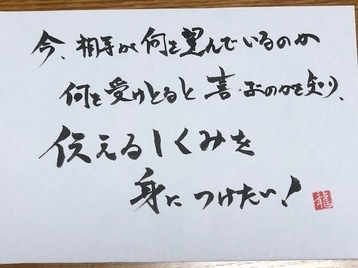 今、相手が何を望んでいるのか
何を受けとると喜ぶのかを知り、
伝えるしくみを
身につけたい!